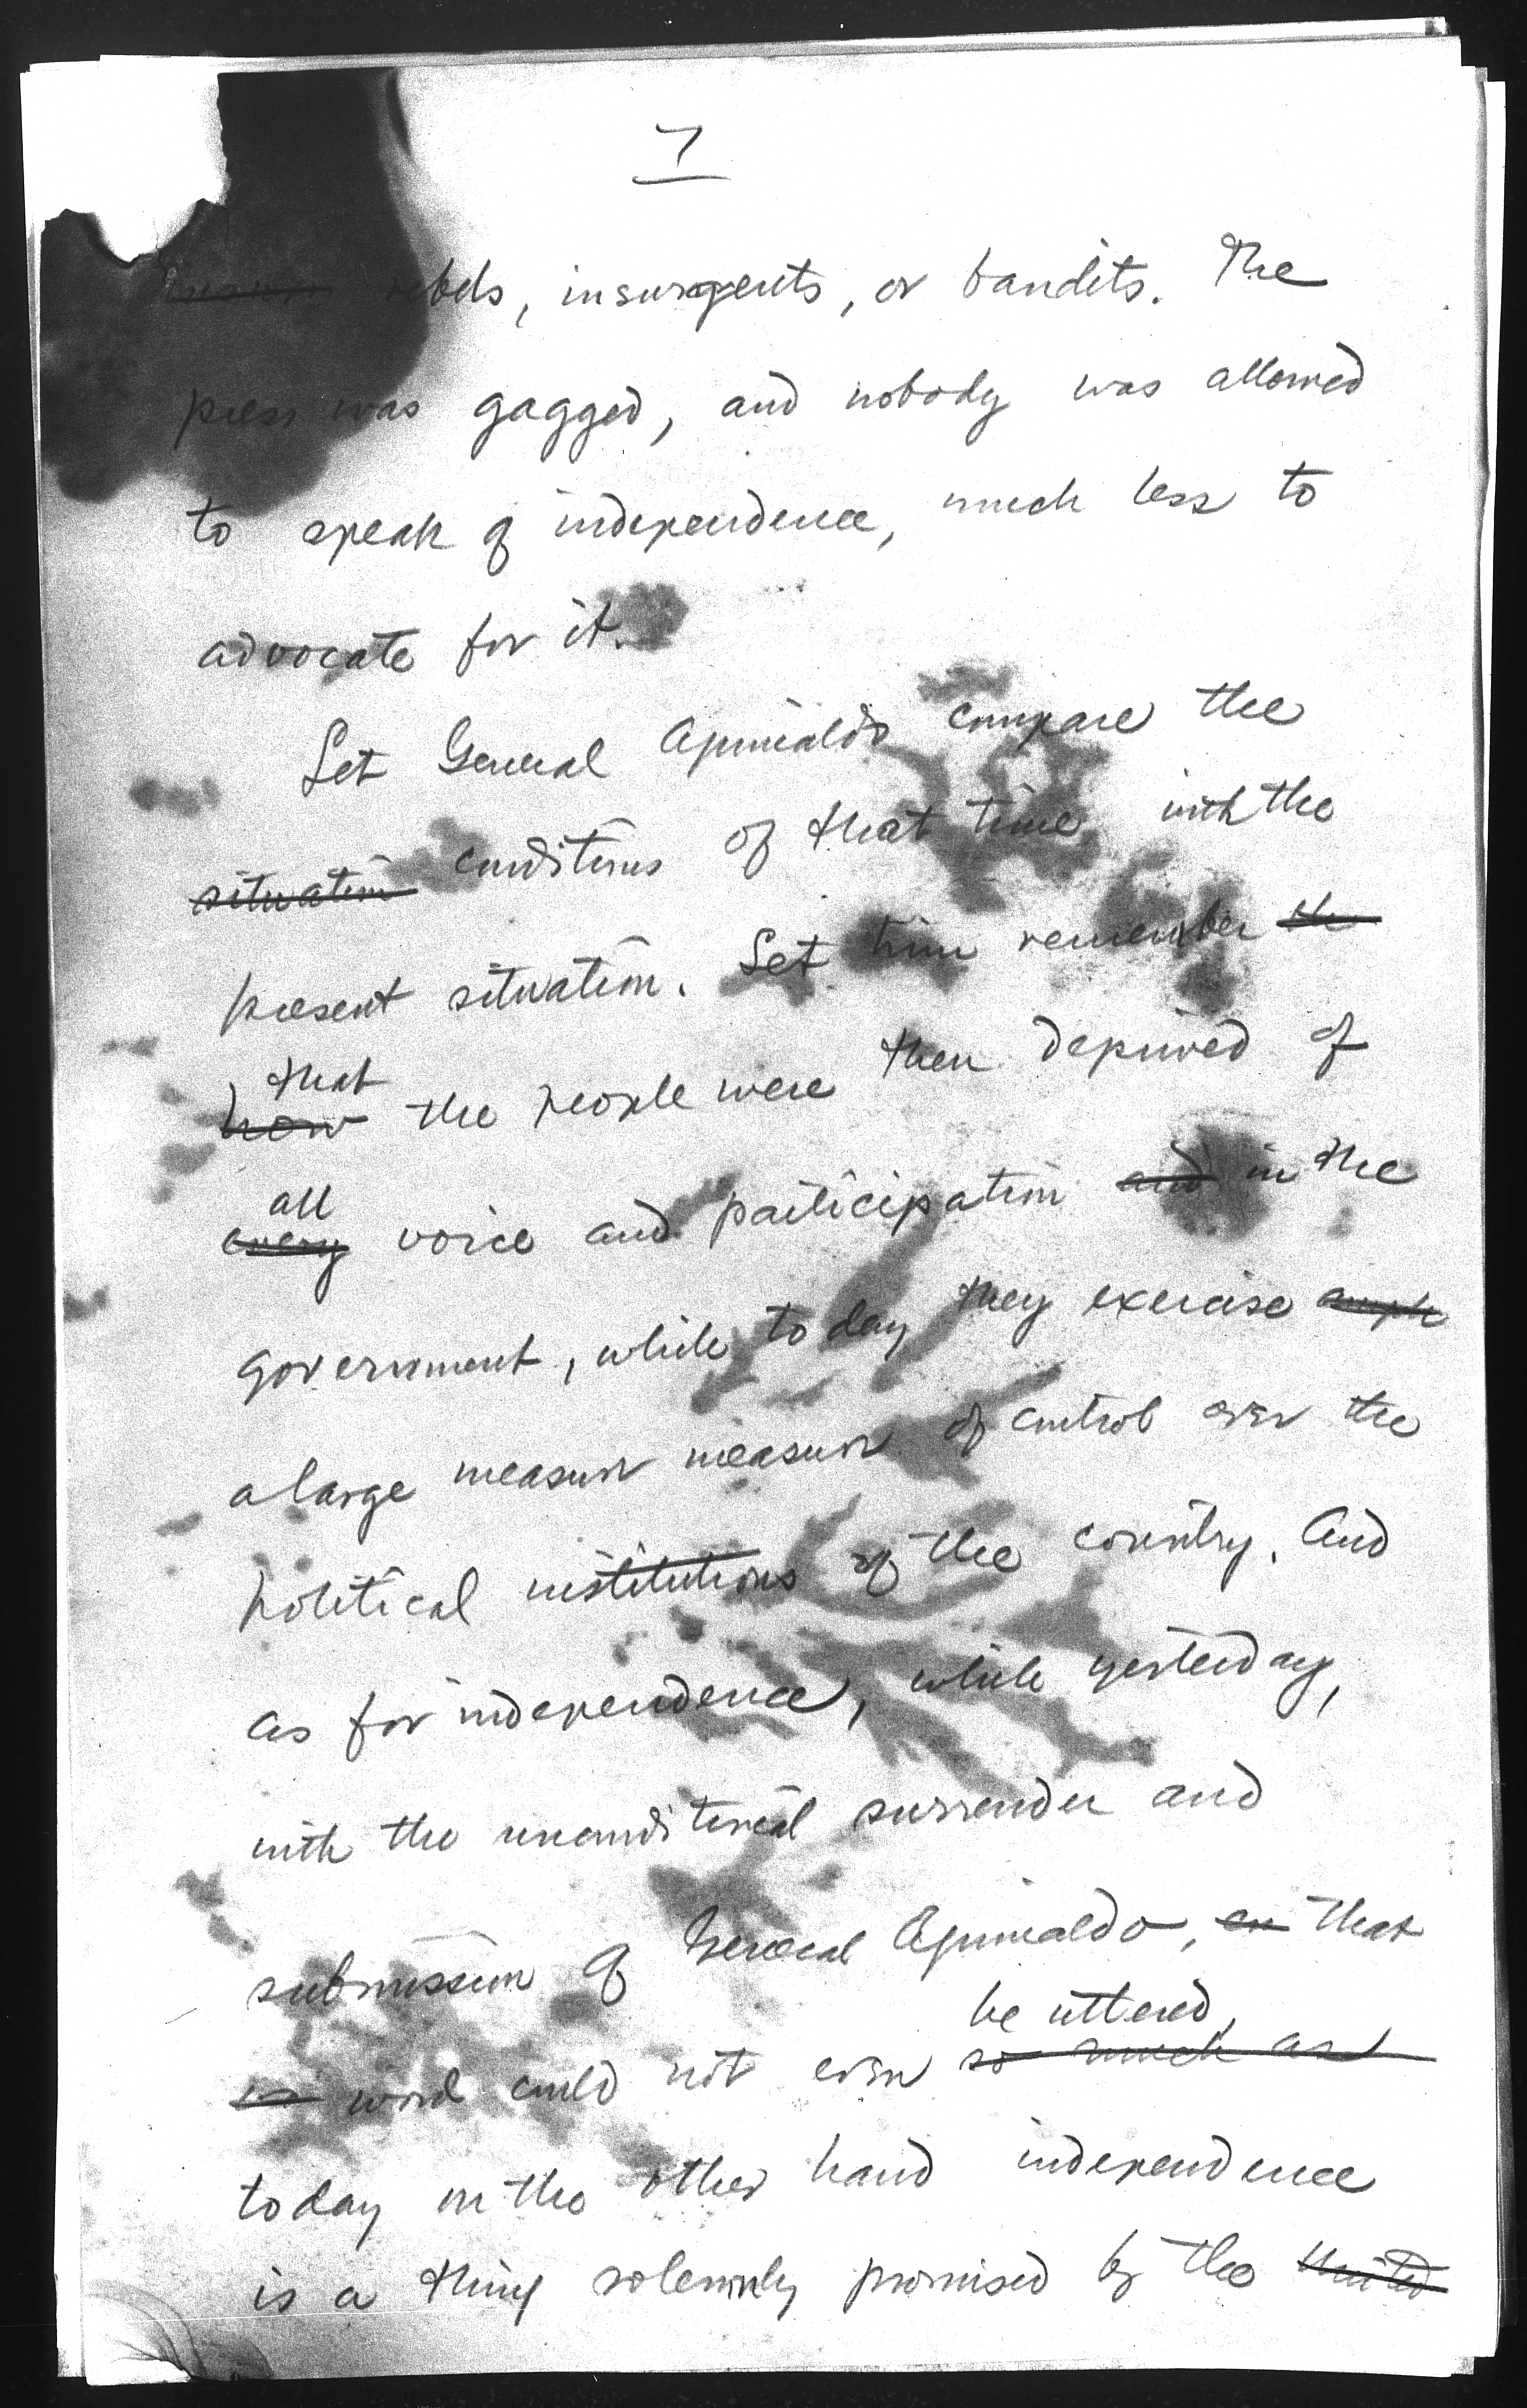 7
rebels, insurgents, or bandits. The
press was gagged, and nobody was allowed
to speak of independence, much less to
advocate for it.
Let General Aguinaldo compare the
situation conditions of that time with the
present situation. Let him remember the
that
how the people were then deprived of
all
every voice and participation and in the
government, while today they exercise
a large measure measure of control over the
political institutions of the country. And
as for independence, while yesterday,
with the unconditional surrender and
submission of General Aguinaldo, that
be uttered,
word could not even so much as
today on the other hand independence
is a thing solemnly promised by the United